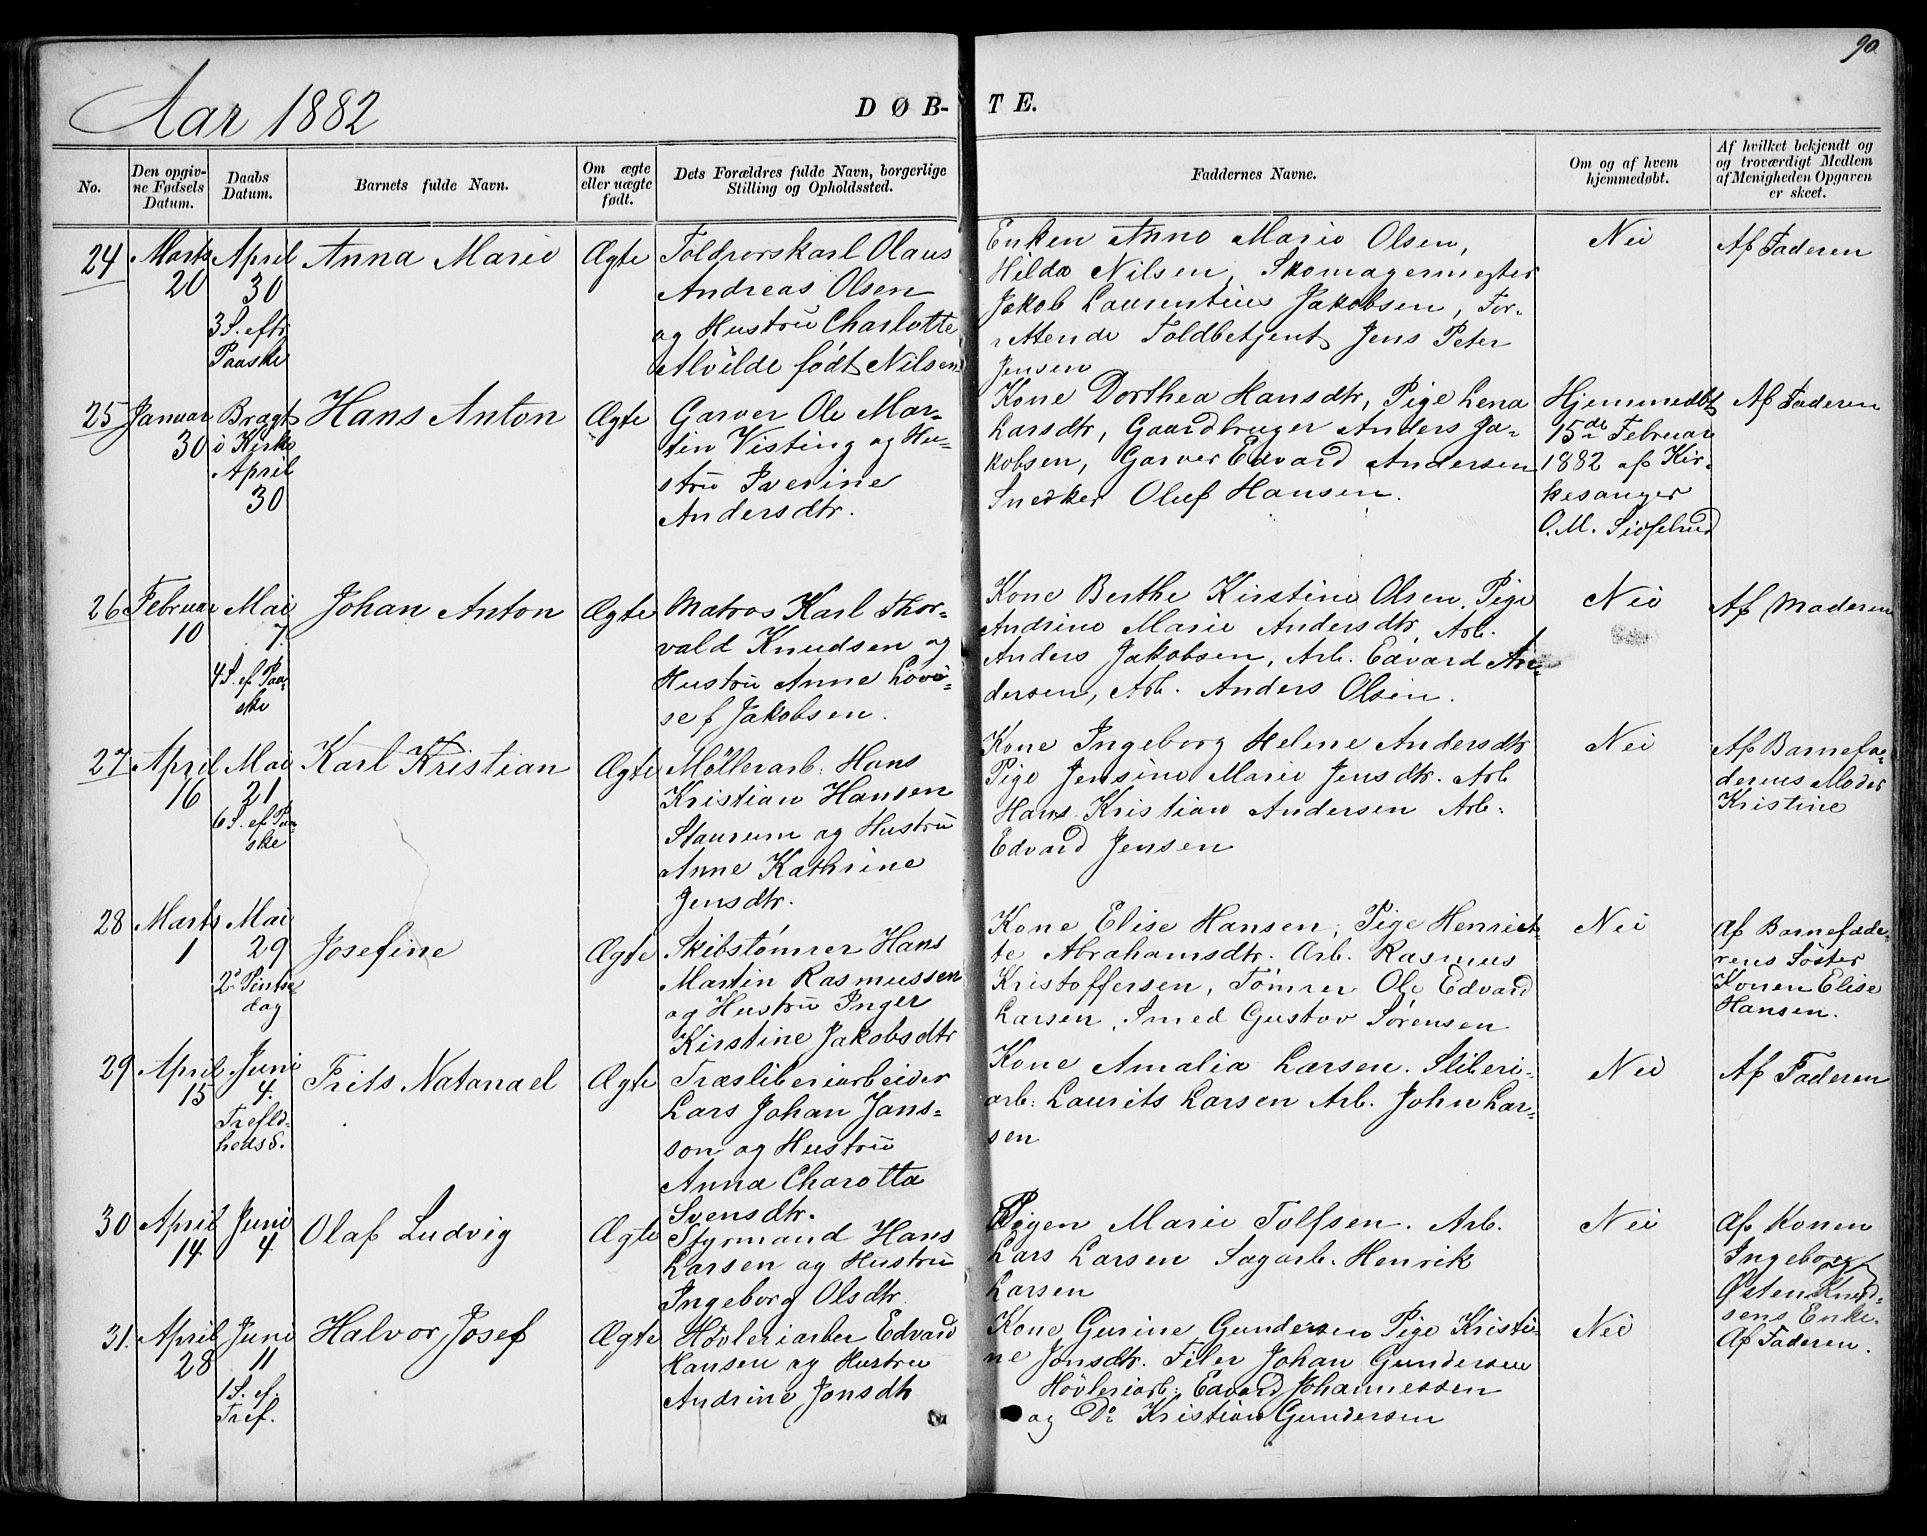 90
Aar 1882
DØB-TE.
No.
Den opgiv-
ne Fødsels
Datum.
Daabs
Datum.
Barnets fulde Navn.
Om ægte
eller uægte
født.
Dets Forældres fulde Navn, borgerlige
Stilling og Opholdssted.
Faddernes Navne.
Om og af hvem
hjemmedøbt.
Af hvilket bekjendt og
og troværdigt Medlem
af Menigheden Opgaven
er skeet.
24
Marts
20
April
30
3 S. eftr
Paaske
Anna Marie
Ægte
Toldrorskarl Olaus
Andreas Olsen
og Hustru Charlotte
Alvilde født Nilsen
Enken Anne Marie Olsen,
Hilda Nilsen, Skomagermester
Jakob Laurentius Jakobsen, For-
rettende Toldbetjent Jens Peter
Jensen
Nei
Af Faderen
25
Januar
30
Bragt
i Kirke
April
30
Hans Anton
Ægte
Garver Ole Mar-
tin Visting og Hu-
stru Iverine
Andersdtr.
Kone Dorthea Hansdtr, Pige Lena
Larsdtr, Gaardbruger Anders Ja-
kobsen, Garver Edvard Andersen
Snedker Oluf Hansen.
Hjemmedbt
15de Februar
1882 af Kir-
kesanger
O. M.
Af Faderen
26
Februar
10
Mai
7.
4 S. ef Paa-
ske
Johan Anton
Ægte
Matros Karl Thor-
vald Knudsen og
Hustru Anne Lovi-
se f Jakobsen.
Kone Berthe Kirstine Olsen, Pige
Andrine Marie Andersdtr, Arb.
Anders Jakobsen, Arb. Edvard An-
dersen, Arb. Anders Olsen.
Nei
Af Moderen
27
April
16
Mai
21
6 S. ef Paa-
ske
Karl Kristian
Ægte
Møllerarb: Hans
Kristian Hansen
Staurum og Hustru
Anne Kathrine
Jensdtr.
Kone Ingeborg Helene Andersdtr
Pige Jensine Marie Jensdtr. Arb
Hans Kristian Andersen Arb:
Edvard Jensen
Nei
Af Barnefa-
derens Moder
Kristine
28
Marts
1
Mai
29
2 Pintse
dag
Josefine
Ægte
Skibstømrer Hans
Martin Rasmussen
og Hustru Inger
Kirstine Jakobsdtr
Kone Elise Hansen, Pige Henriet-
te Abrahamsdtr. Arb. Rasmus
Kristoffersen, Tømrer Ole Edvard
Larsen, Smed Gustav Sørensen
Nei
Af Barnefade-
rens Søster
Konen Elise
Hansen.
29
April
15
Juni
4.
Trefld-
heds S.
Frits Natanael
Ægte
Træsliberiarbeider
Lars Johan Jans-
son og Hustru
Anna Charotta
Svensdtr.
Kone Amalia Larsen. Sliberi-
arb: Laurits Larsen Arb. John Lar-
sen
Nei
Af Faderen
30
April
14
Juni
4
Olaf Ludvig
Ægte
Styrmand Hans
Larsen og Hustru
Ingeborg Olsdtr
Pigen Marie Tolfsen. Arb.
Lars Larsen Sagarb. Henrik
Larsen
Nei
Af Konen
Ingeborg
Østen Knud-
sens Enke.
31.
April
28
Juni
11
1 S. ef.
Tref.
Halvor Josef
Ægte
Høvleriarber Edvard
Hansen og Hustru
Andrine Jonsdtr
Kone Gurine Gundersen Pige Kristi-
ne Jonsdtr. Filer Johan Gundersen
Høvleriarb: Edvard Johannessen
og Do: Kristian Gundersen
Nei
Af Faderen.